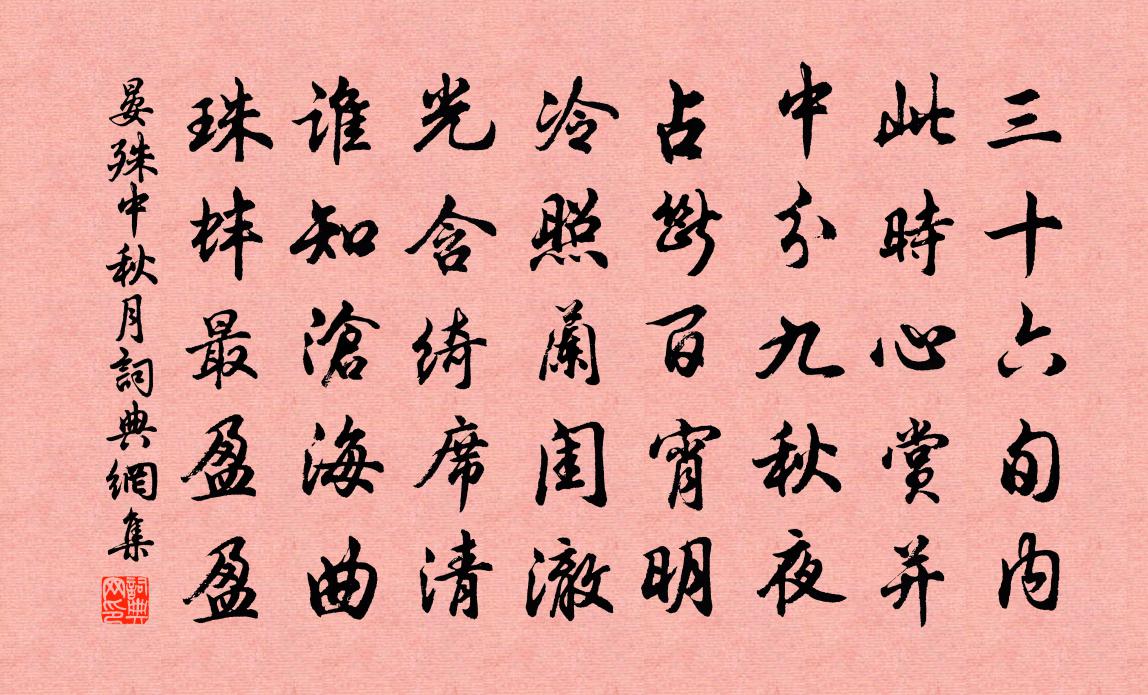 三十六旬內
此時心賞并
中分九秋夜
占斷百宵明
冷照蘭閨澈
光含綺席清
誰知滄海曲
珠蚌最盈盈
晏殊中秋月詞典網集
詞典網印